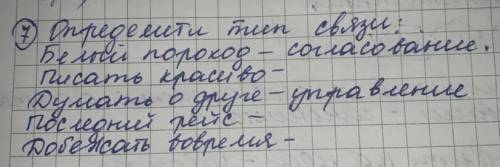 7 Определити тип связи:
Белый пороход - согласование.
Писать красиво -
Думать о друге - управление
Последний рейс -
Добежать вовремя -